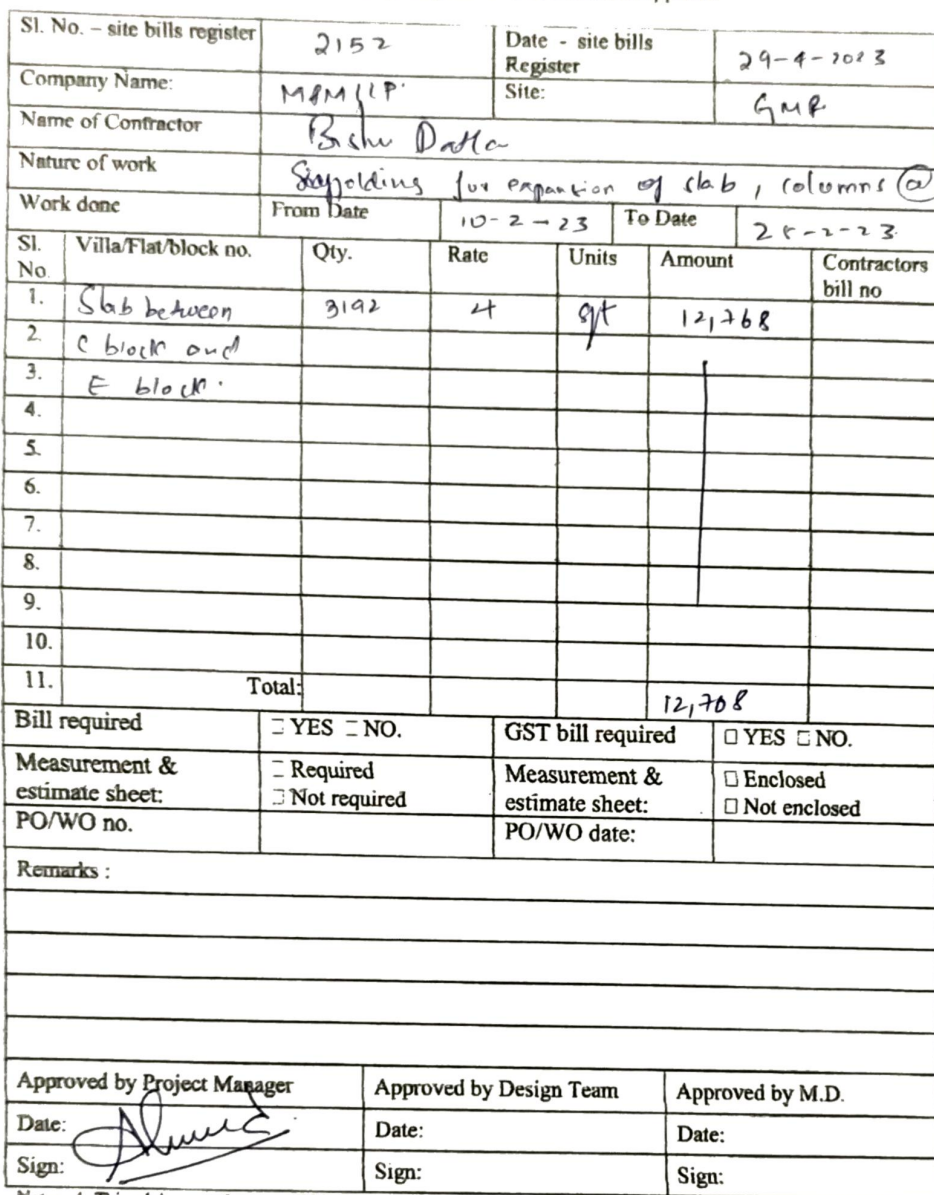 Sl. No. – site bills register 2152 Date - site bills Register 29-4-2023
Company Name: M&M LLP. Site: GMR
Name of Contractor Bishu Datta
Nature of work Scaffolding for expantion of slab, columns @
Work done From Date 10-2-23 To Date 28-2-23.
Sl. No. Villa/Flat/block no. Qty. Rate Units Amount Contractors bill no
1. Slab between 3192 4 sft 12,768
2. C block and
3. E block.
4.
5.
6.
7.
8.
9.
10.
11. Total: 12,768
Bill required □ YES □ NO. GST bill required □ YES □ NO.
Measurement & estimate sheet: □ Required □ Not required Measurement & estimate sheet: □ Enclosed □ Not enclosed
PO/WO no. PO/WO date:
Remarks :
Approved by Project Manager Approved by Design Team Approved by M.D.
Date: Date: Date:
Sign: Sign: Sign: